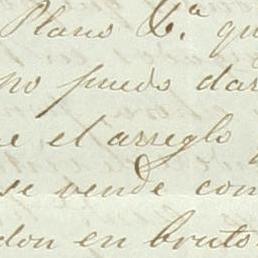 Plano 6.ª qu
po puedo dar
e el arreglo
se vende com
don en bruto